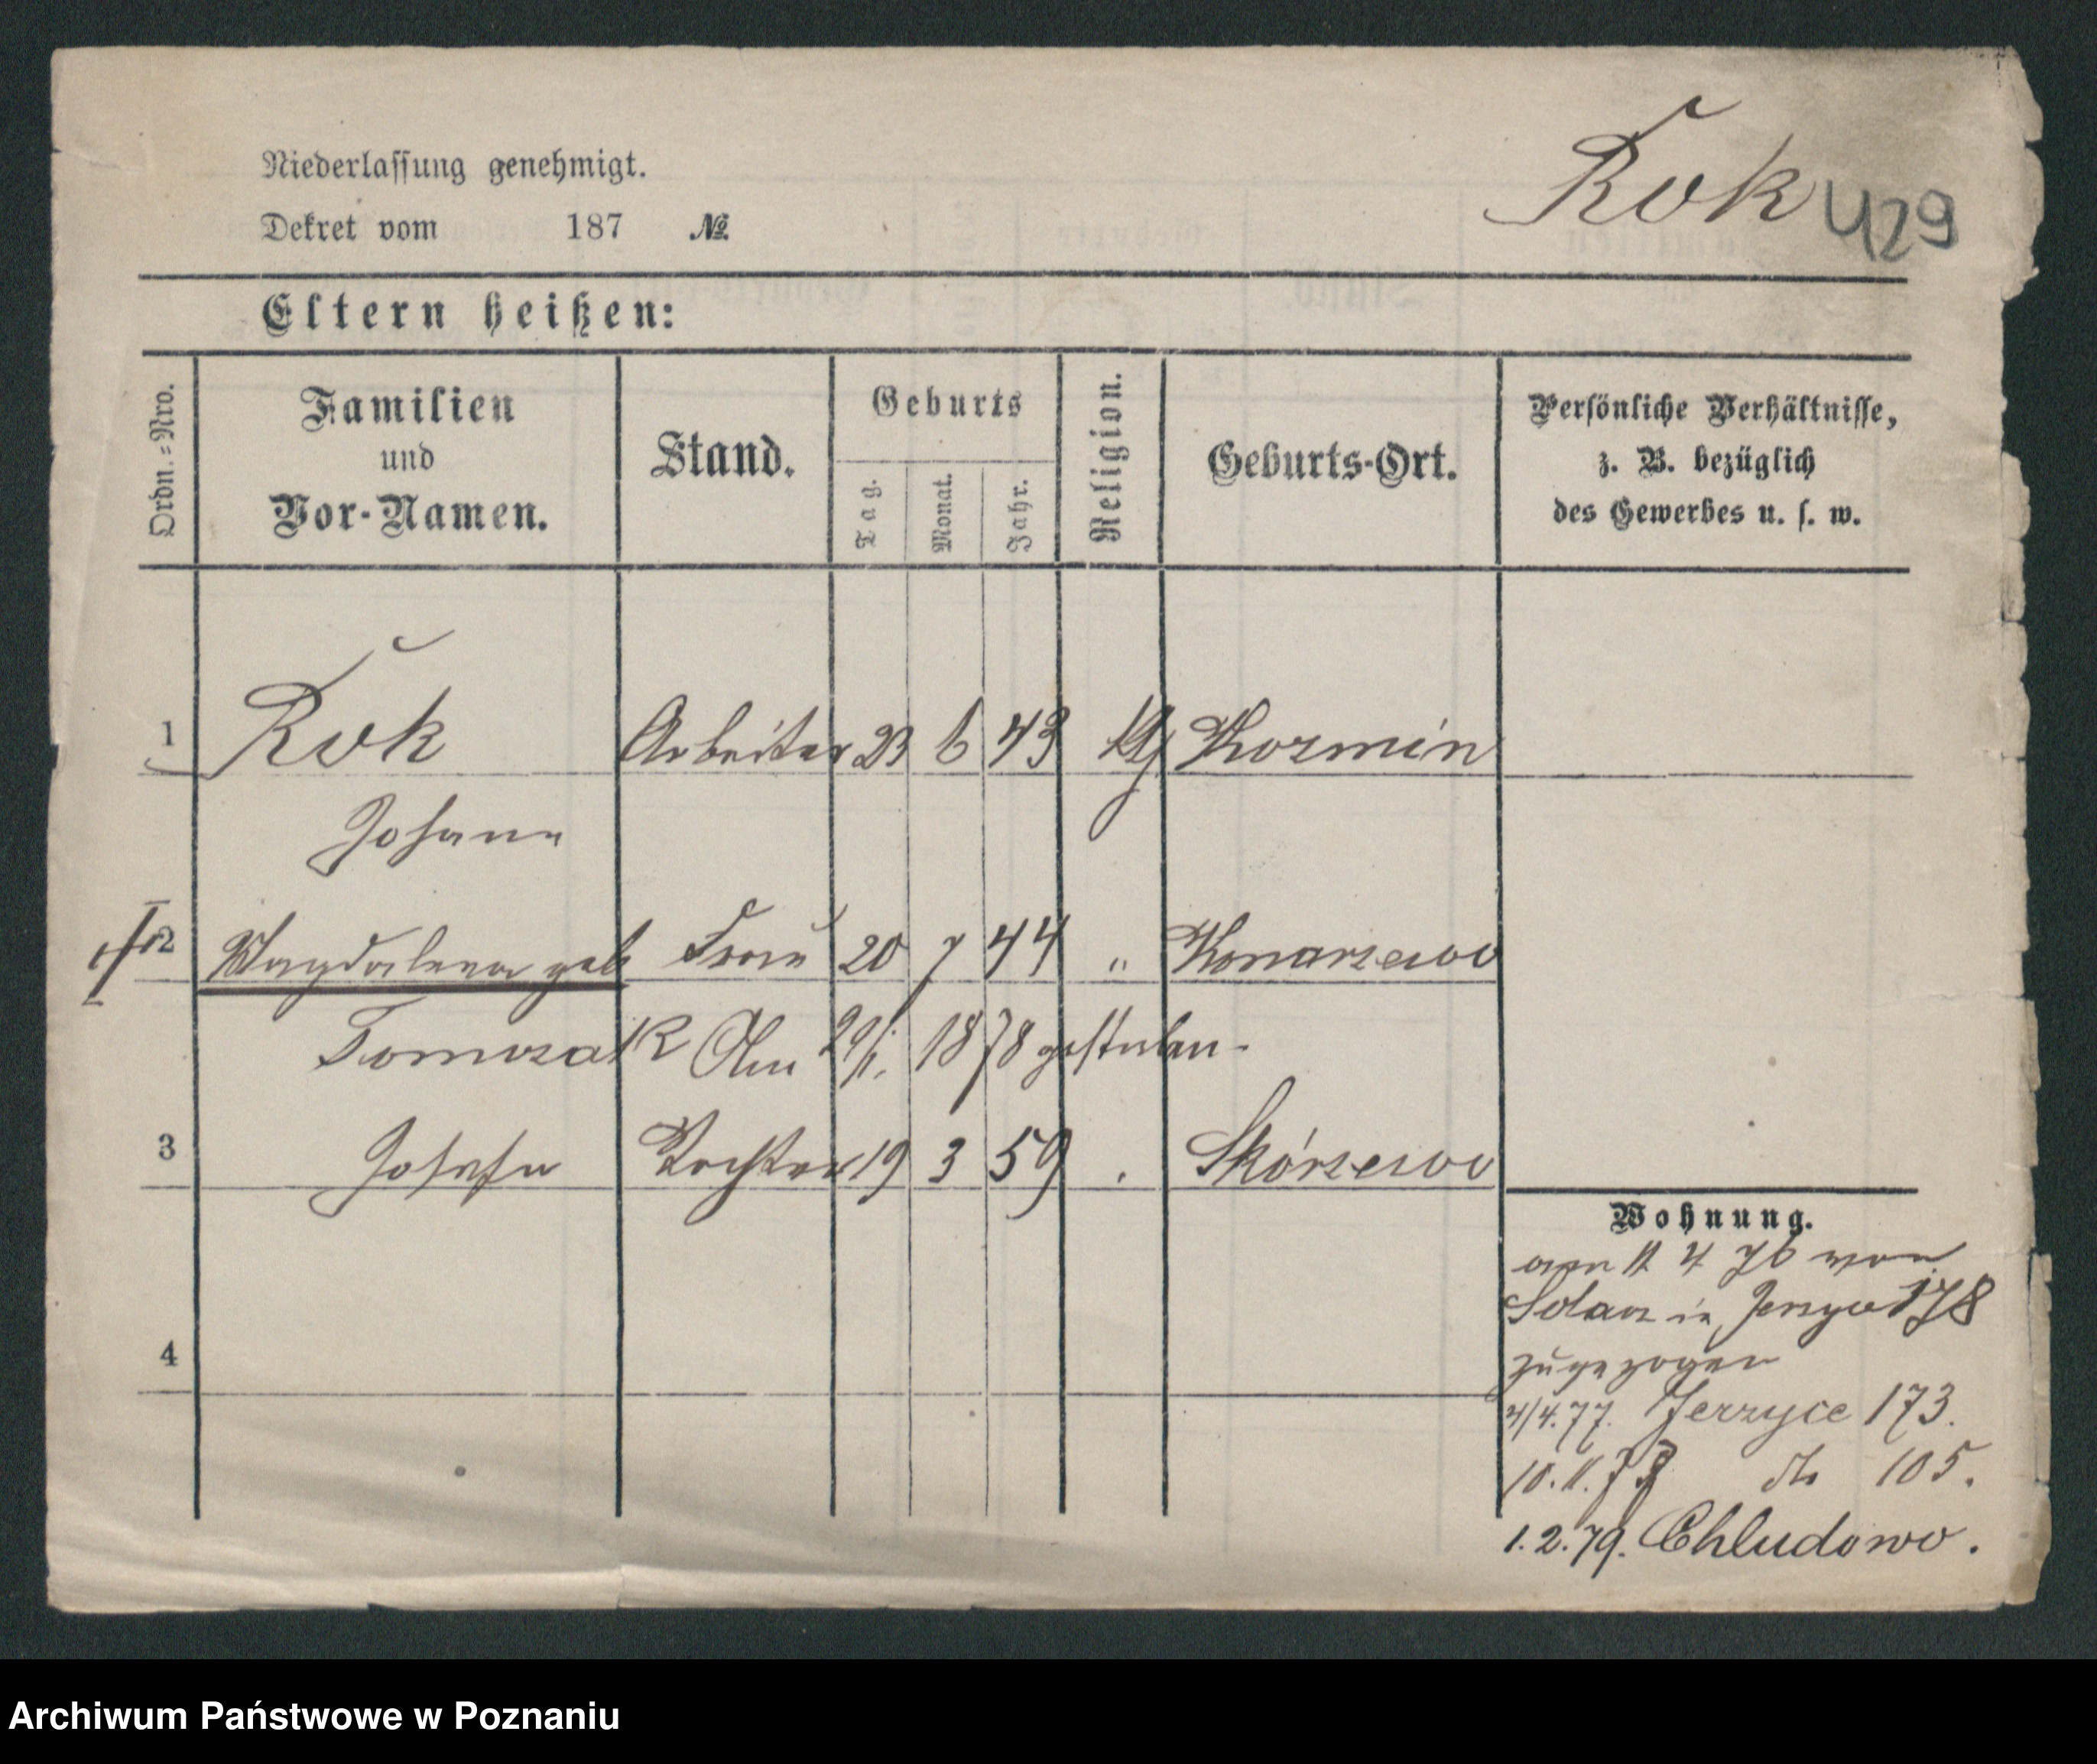 Rok 429
Niederlassung genehmigt.
Dekret vom 187 №
Eltern heißen:
Ordn.=Nro.
Familien
und
Vor-Namen.
Stand.
Geburts
Tag.
Monat.
Jahr.
Religion.
Geburts-Ort.
Persönliche Verhältnisse,
z. B. bezüglich
des Gewerbes u. s. w.
1 Rok Arbeiter 23 6 43 Kozmin
Johann
2 Magdalena geb Frau 20 7 44 " Konarzewo
Tomczak Am 29/1. 1878 gestorben
3 Josefa Tochter 19 3 59 . Skórzewo
4
Wohnung.
am 11 4 76 von
in Jerzyce 178
zugezogen
4/4.77. Jerzyce 173.
10.11.77 do 105.
1.2.79. Chludowo.
Archiwum Państwowe w Poznaniu